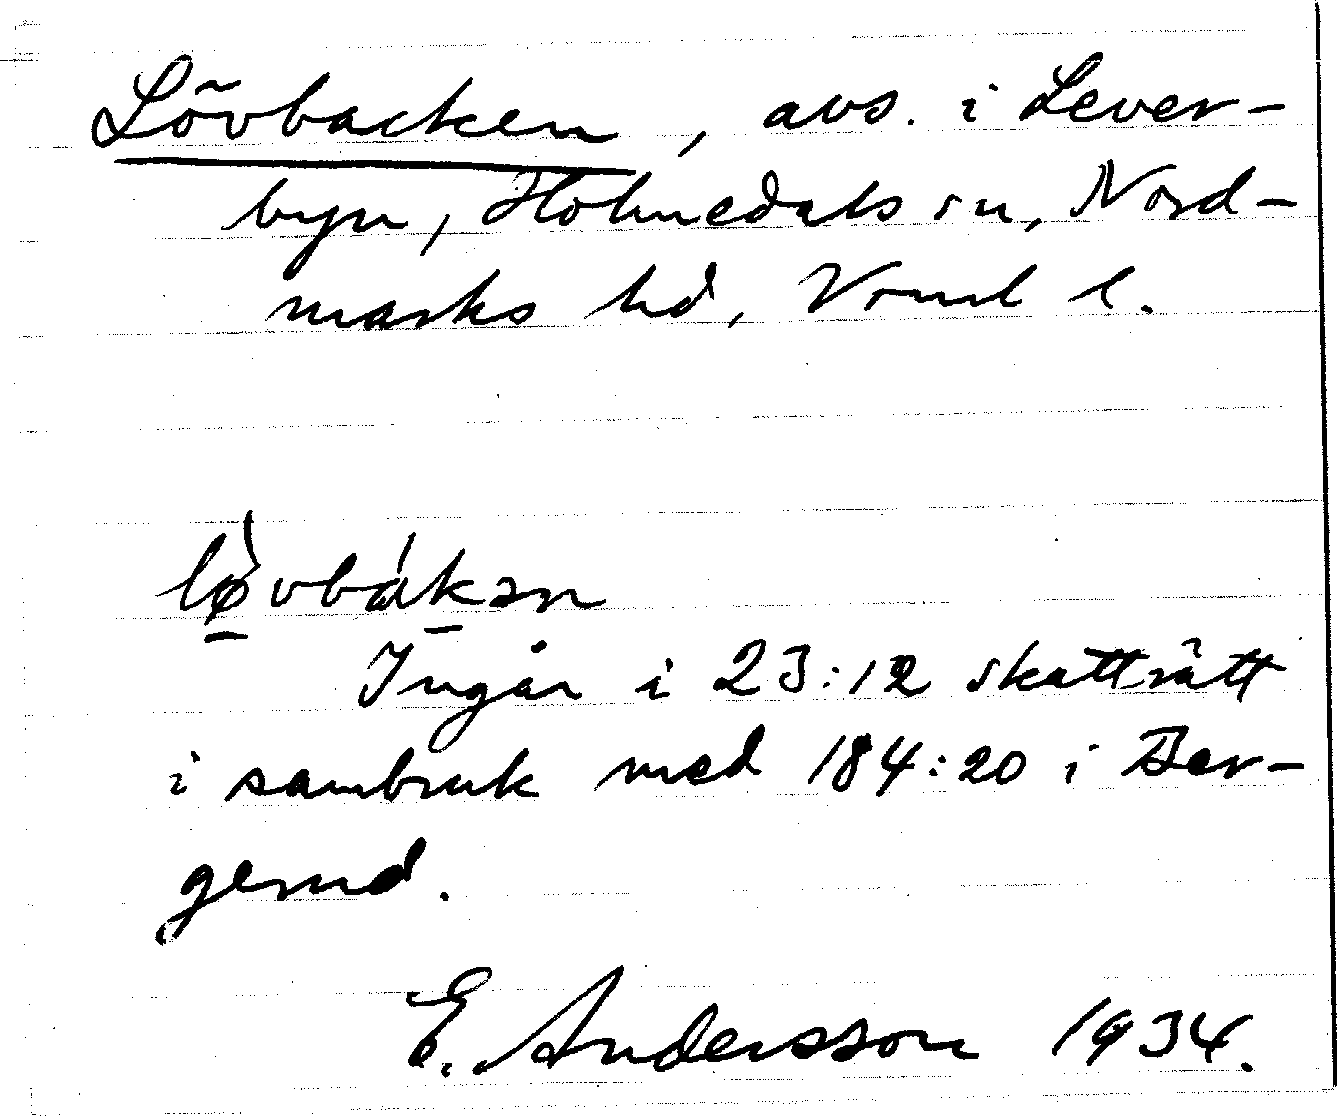 Lövbacken, avs. i Lever-
byn, Holmedals sn, Nord-
marks hd, Vrml l.
lø̠̀vbák̠ən
Ingår i 23:12 skatträtt
i sambruk med 184:20 i Ber-
gerud.
E. Andersson 1934.